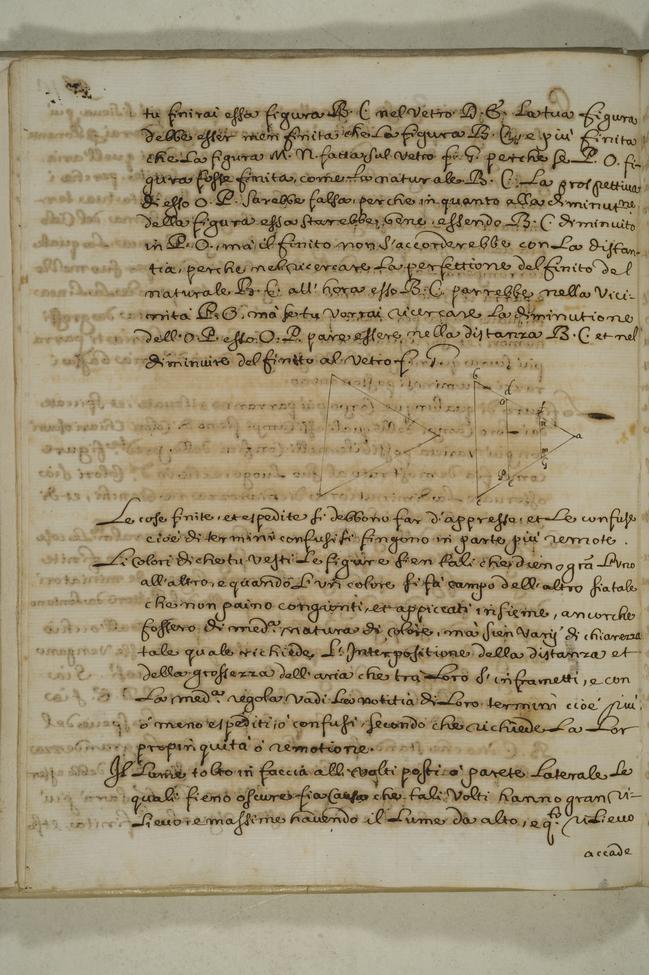 tu finirai essa figura B. C. nel vetro D. S. La tua figura
debbe esser men finita che la figura B. C., e più finita
che la figura M. N. fatta sul vetro f. g. perche se P. O. fi-
gura fosse finita, come la naturale B. C. la prospettiua
di esso O. P. sarebbe falsa, perche in quanto alla diminutne
della figura essa starebbe, bene, essendo B. C. diminuito
in P. O., mà il finito non s'accorderebbe con la distan-
tia, perche nel ricercare la perfettione del finito del
naturale B. C. all'hora esso B. C. parrebbe nella vici-
nità P. O. mà se tu vorrai ricercare la diminutione
dell O. P. esso O. P. pare essere nella distanza B. C. et nel
diminuire del finito al vetro f. g.
b
d
o
f
n
a
m
g
P
c
Le cose finite, et espedite si debbono far d'appresso, et le confuse
cioè di termini confusi si fingono in parte più remote.
Li colori di che tu vesti le figure sien tali che dieno gra. l'uno
all'altro, e quando un colore si fà campo dell altro sia tale
che non paino congionti, et appiccati insieme, ancorche
fossero di med.a natura di colore, mà sien varij di chiarezza
tale quale richiede l'Interpositione della distanza et
della grossezza dell'aria che trà loro s'inframetti, e con
la med.a regola vadi la notitia di loro termini cioè più,
ò meno espediti, ò confusi, secondo che richiede la lor
propinquità ò remotione.
Il lume tolto in faccia alli volti posti à parete laterale le
quali sieno oscure fia causa che tali volti hanno gran ri-
lieuo e massime havendo il lume da alto, e q.to rilieuo
accade